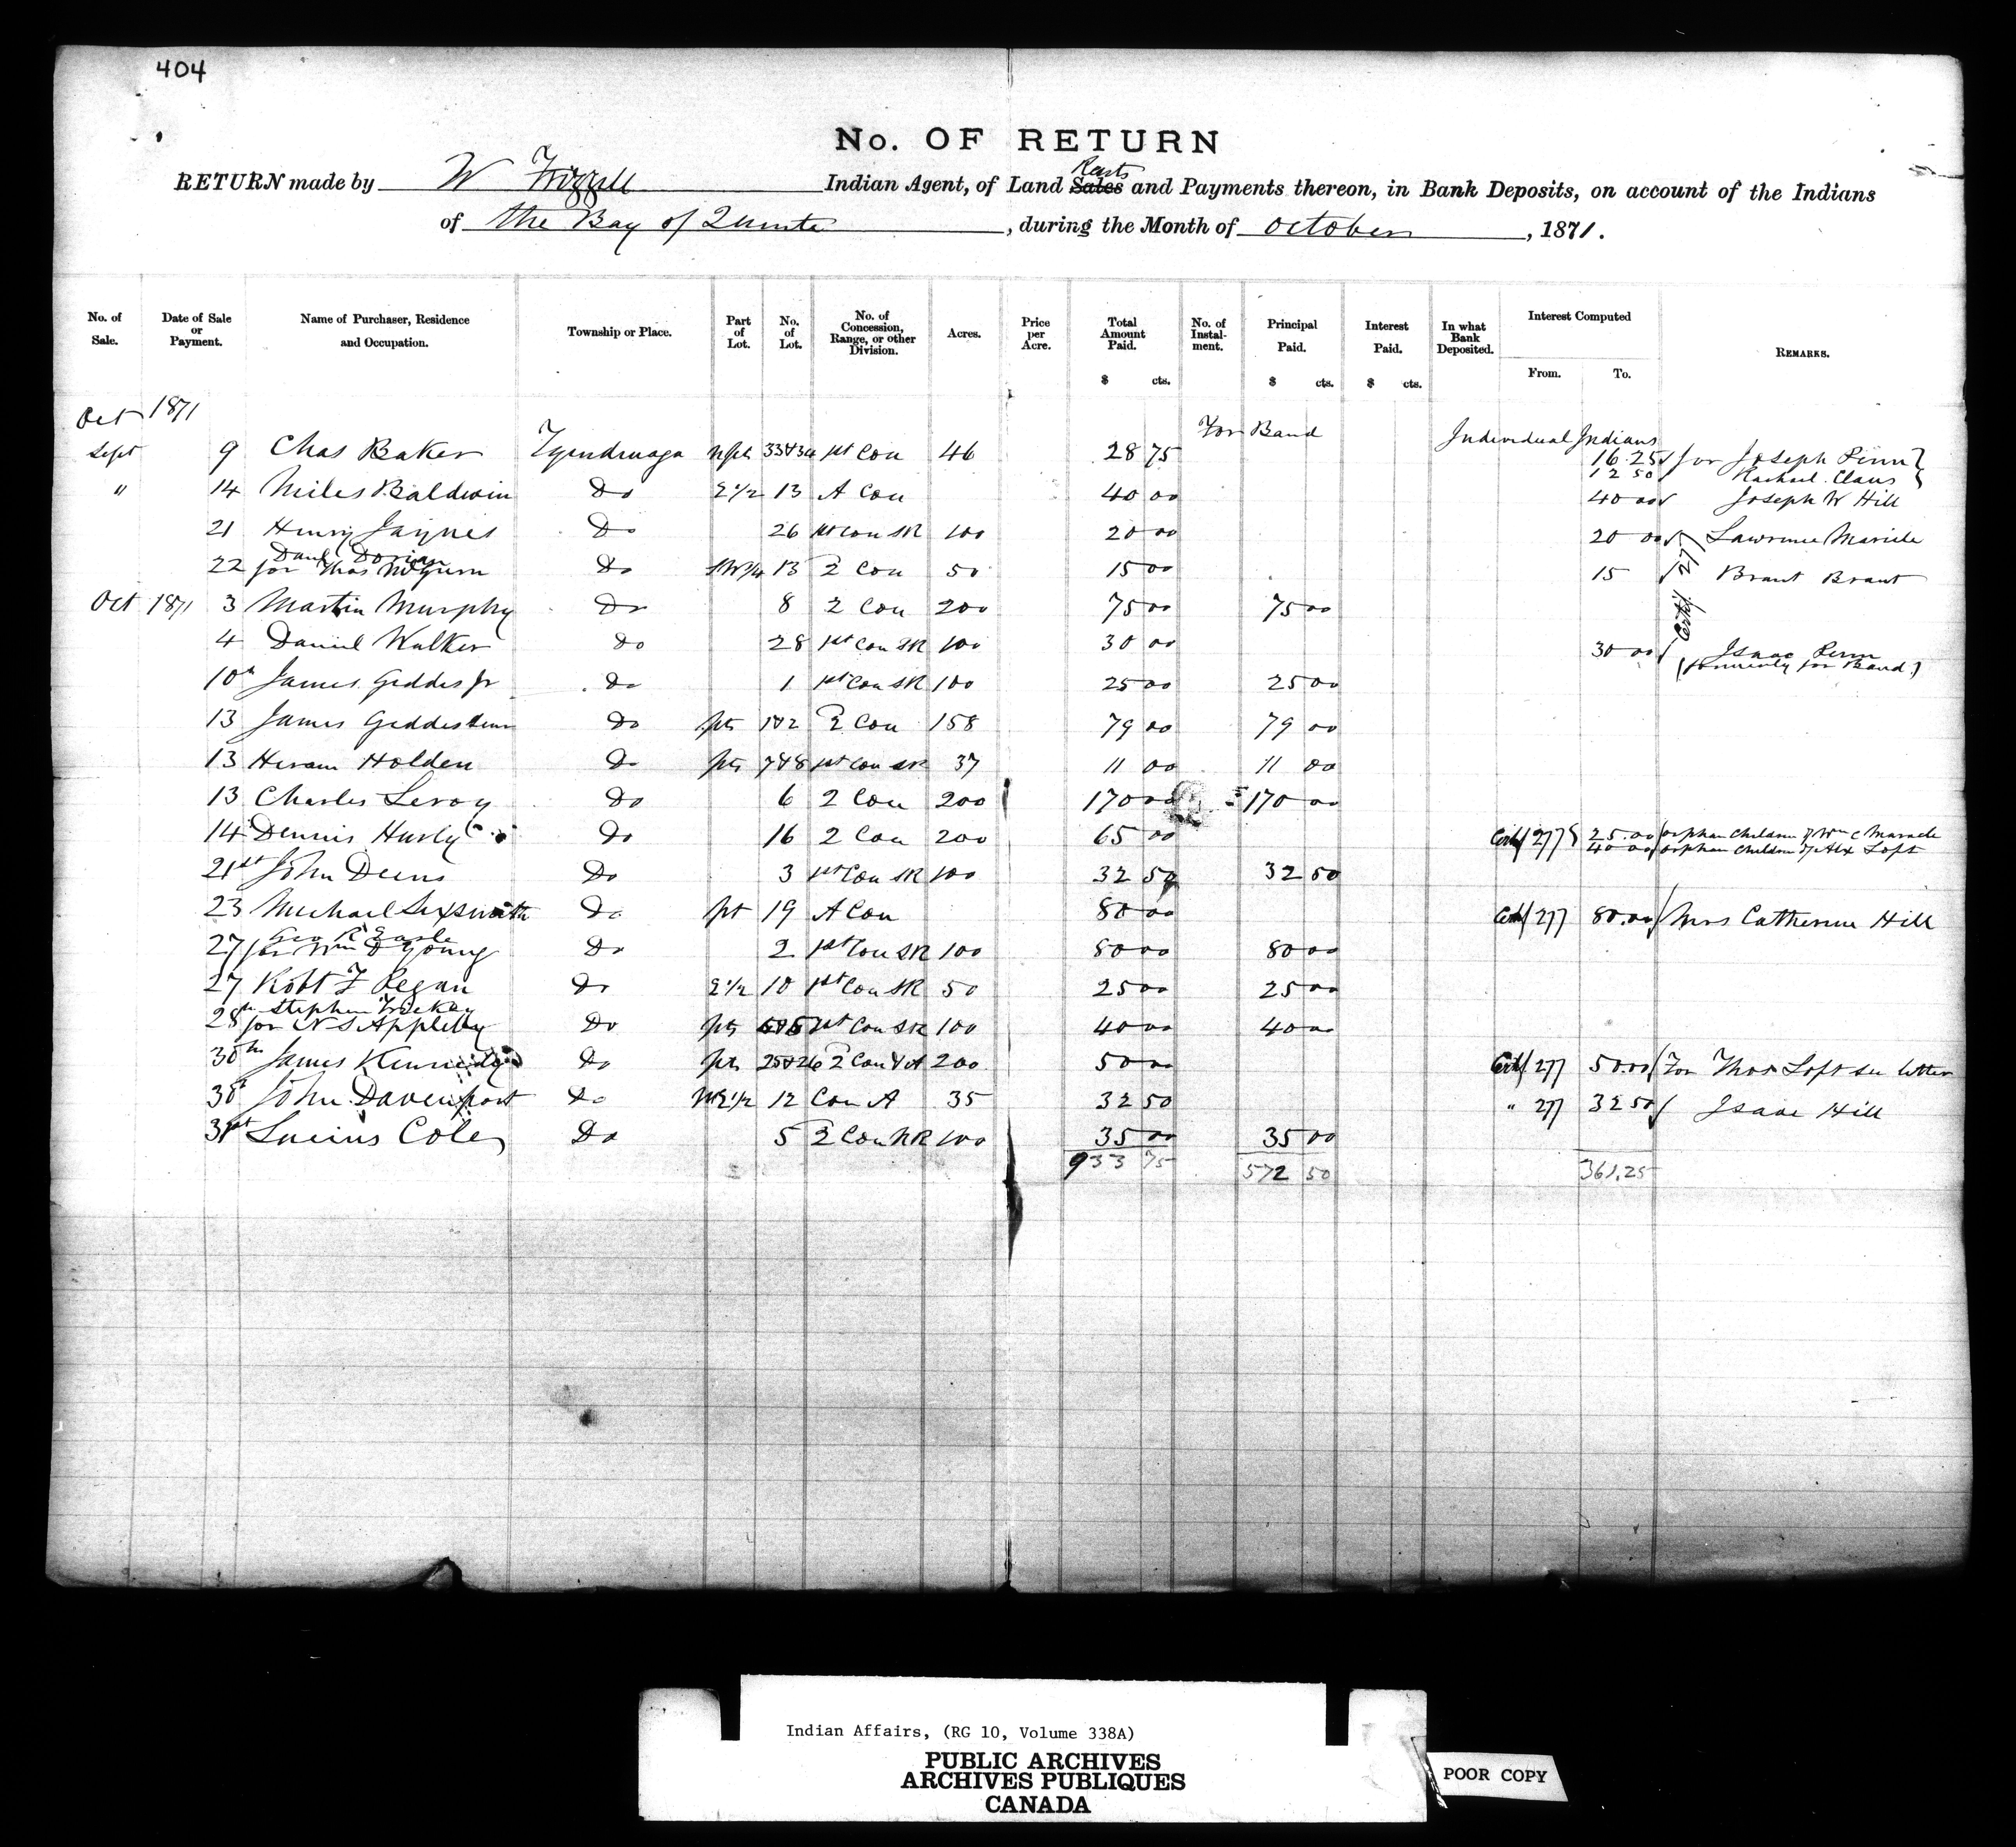 404
No. OF RETURN
RETURN made by W Frizzell Indian Agent, of Land Sales Rents and Payments thereon, in Bank Deposits, on account of the Indians
of the Bay of Quinte, during the Month of October, 1871.
No. of Sale. Date of Sale or Payment. Name of Purchaser, Residence and Occupation. Township or Place. Part of Lot. No. of Lot. No. of Concession, Range, or other Division. Acres. Price per Acre. Total Amount Paid. $ cts. No. of Instalment. Principal Paid. $ cts. Interest Paid. $ cts. In what Bank Deposited. Interest Computed From. To. REMARKS.
Oct 1871 For Band Individual Indians
Sept 9 Chas Baker Tyendinaga N pt 33&34 1st Con 46 28 75 16.25 for Joseph Penn
12 50 Rachael Claus
" 14 Miles Baldwin Do E 1/2 13 A Con 40 00 40 00 Joseph W Hill
21 Henry Jaynes Do 26 1st Con SR 100 20 00 20 00 Lawrence Maricle
Danl Dorian
22 for Thos McGurn Do SW 1/4 13 2 Con 50 15 00 15 Brant Brant
Certif 277
Oct 1871 3 Martin Murphy Do 8 2 Con 200 75 00 75 00
4 Daniel Walker Do 28 1st Con SR 100 30 00 30 00 Isaac Penn
(formerly for Band)
10th James Geddes Jr Do 1 1st Con SR 100 25 00 25 00
13 James Geddes Senr Do pts 1&2 2 Con 158 79 00 79 00
13 Hiram Holden Do pts 7&8 1st Con SR 37 11 00 11 00
13 Charles Leroy Do 6 2 Con 200 170 00 170 00
14 Dennis Hurly Do 16 2 Con 200 65 00 Certif 277 25.00 orphan children of Wm C Maracle
40 00 orphan children of Alx Loft
21st John Deens Do 3 1st Con SR 100 32 50 32 50
23 Michael Sexsmith Do pt 19 A Con 80 00 Certf 277 80.00 Mrs Catherine Hill
Geo R Earle
27 for Wm D Young Do 2 1st Con SR 100 80 00 80 00
27 Robt F Regan Do E 1/2 10 1st Con SR 50 25 00 25 00
Stephen
28th for N S Appleby Do pts 1st Con SR 100 40 00 40 00
30th James Kennedy Do pts 25&26 2 Con & A 200 50 00 Certf 277 50.00 For Thos Loft see letter
John Davenport Do 12 Con A 35 32 50 " 277 32 50 Isaac Hill
31st Lucius Cole Do 5 2 Con NR 100 35 00 35 00
933 75 572 50 361.25
Indian Affairs, (RG 10, Volume 338A)
PUBLIC ARCHIVES
ARCHIVES PUBLIQUES
CANADA
POOR COPY